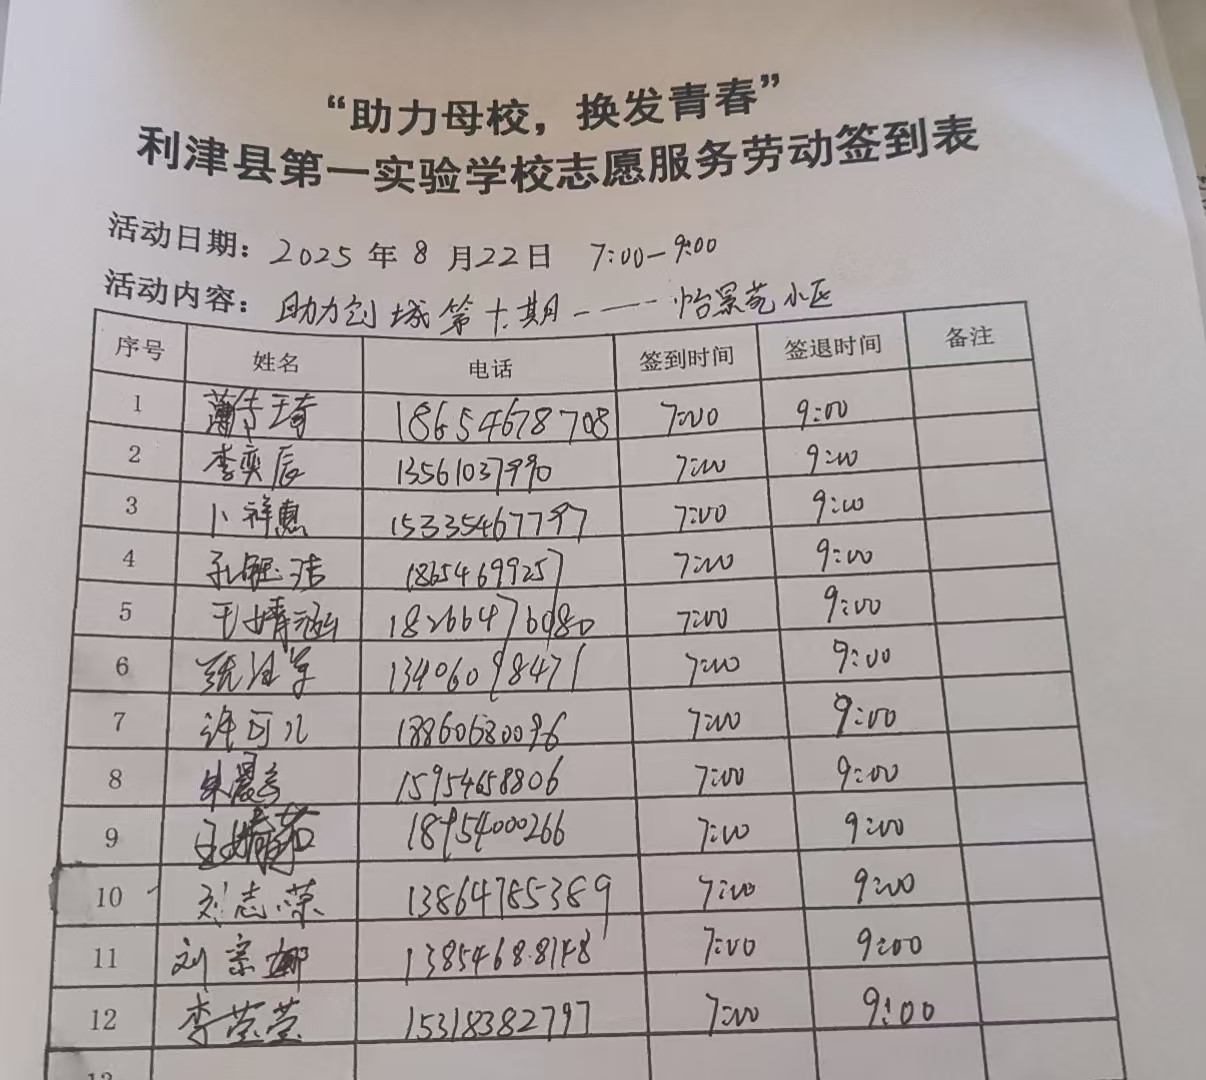 “助力母校，换发青春”
利津县第一实验学校志愿服务劳动签到表
活动日期：2025年8月22日 7:00-9:00
活动内容：助力创城第十期——怡景苑小区
序号 姓名 电话 签到时间 签退时间 备注
1 薄传琦 18654678708 7:00 9:00
2 李奕辰 13561037990 7:00 9:00
3 卜祥惠 15335467797 7:00 9:00
4 孔 洁 18654699257 7:00 9:00
5 王婧涵 18266476980 7:00 9:00
6 13406098471 7:00 9:00
7 许可儿 13860680096 7:00 9:00
8 朱晨 15954658806 7:00 9:00
9 王 茹 18954000266 7:00 9:00
10 刘志荣 13864785389 7:00 9:00
11 刘宗娜 13854688148 7:00 9:00
12 李莹莹 15318382797 7:00 9:00
13